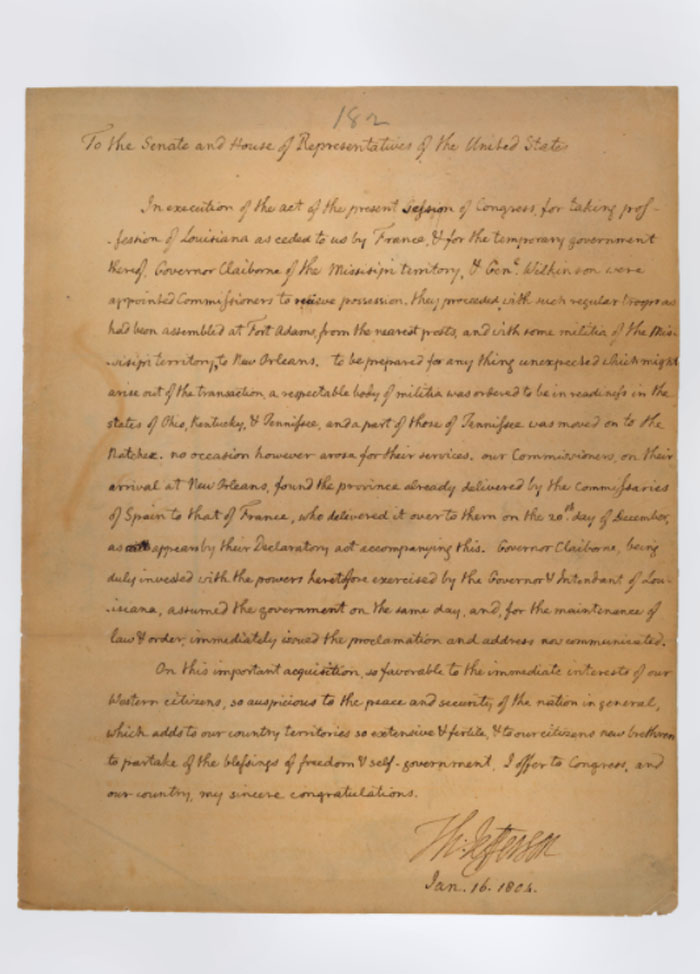 182
To the Senate and House of Representatives of the United States
In execution of the act of the present Session of Congress, for taking pos-
-session of Louisiana as ceded to us by France, & for the temporary government
thereof, Governor Claiborne of the Missisipi territory, & Genl. Wilkinson were
appointed Commissioners to recieve possession. they proceeded with such regular troops as
had been assembled at Fort Adams, from the nearest posts, and with some militia of the Mis-
-sisipi territory, to New Orleans. to be prepared for any thing unexpected which might
arise out of the transaction, a respectable body of militia was ordered to be in readiness in the
states of Ohio, Kentucky, & Tennissee, and a part of those of Tennissee was moved on to the
Natchez. no occasion however arose for their services. our Commissioners, on their
arrival at New Orleans, found the province already delivered by the Commissaries
of Spain to that of France, who delivered it over to them on the 20th day of December,
as appears by their Declaratory act accompanying this. Governor Claiborne, being
duly invested with the powers heretofore exercised by the Governor & Intendant of Lou-
-isiana, assumed the government on the same day, and, for the maintenance of
law & order, immediately issued the proclamation and address now communicated.
On this important acquisition, so favorable to the immediate interests of our
Western citizens, so auspicious to the peace and security of the nation in general,
which adds to our country territories so extensive & fertile, & to our citizens new brethren
to partake of the blessings of freedom & self-government, I offer to Congress, and
our country, my sincere congratulations.
Th: Jefferson
Jan. 16. 1804.